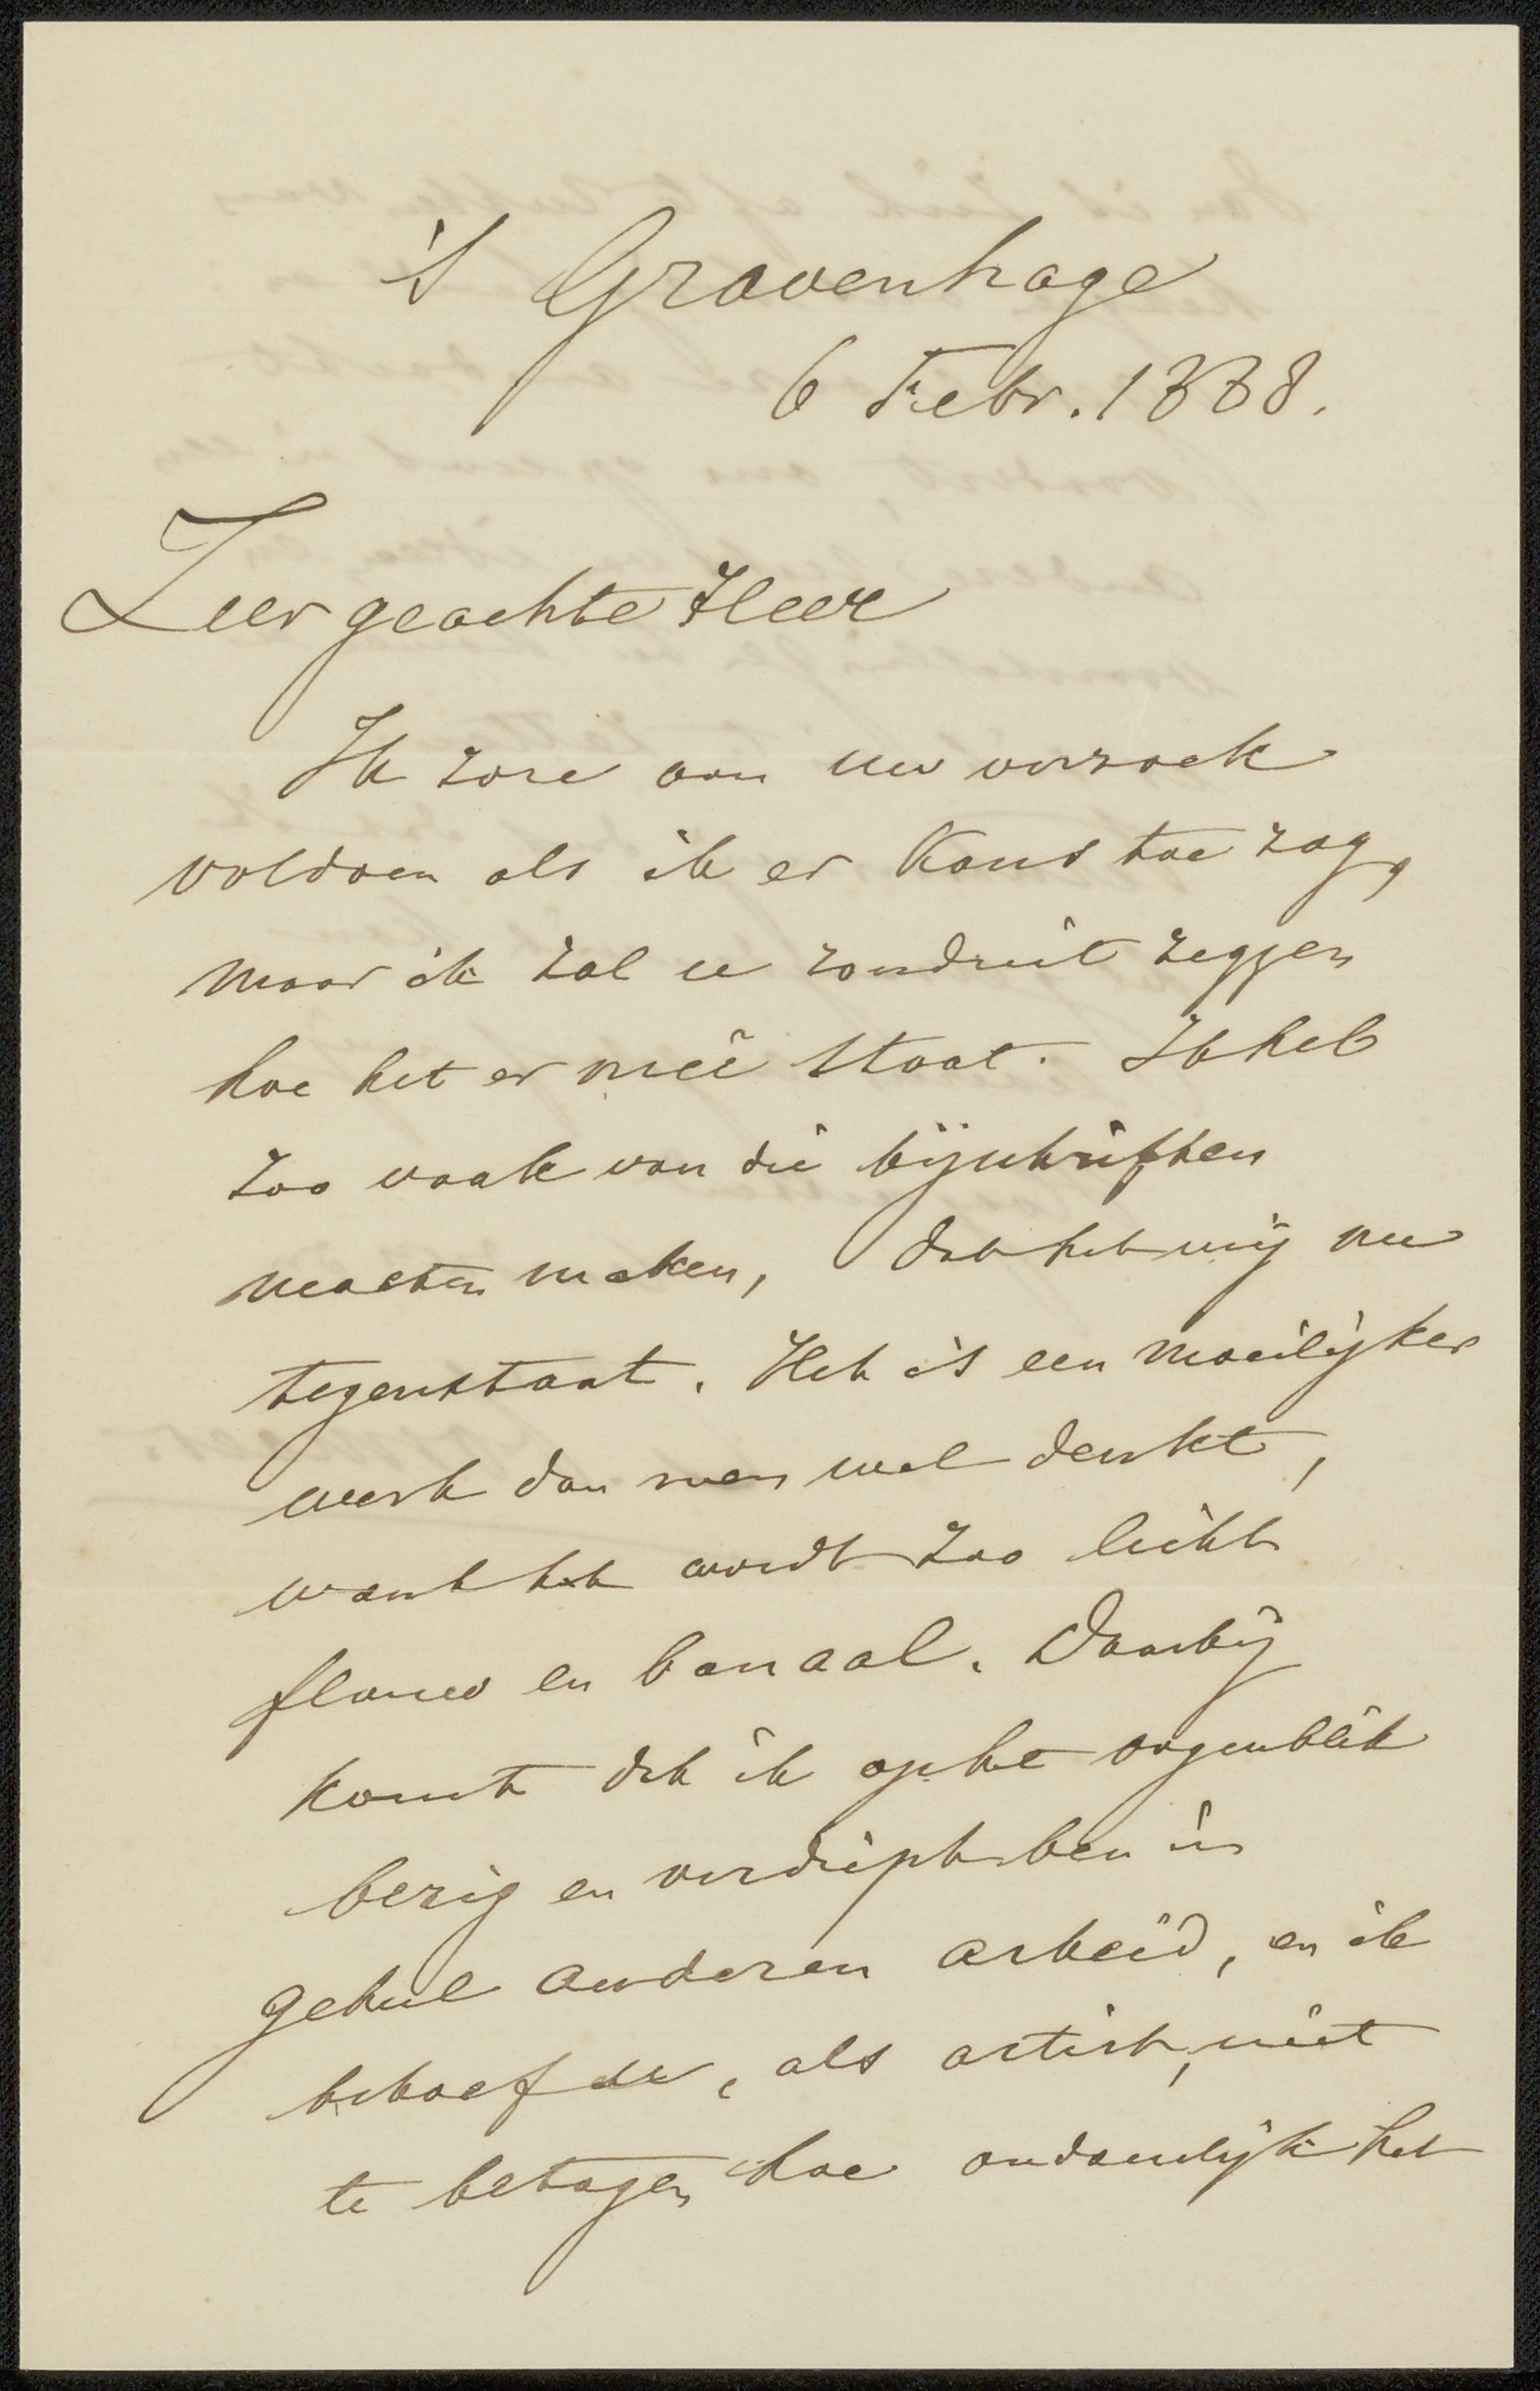 's Gravenhage
6 Febr. 1888.
Zeer geachte Heer
Ik zou aan uw verzoek
voldoen als ik er kans toe zag,
maar ik zal u ronduit zeggen
hoe het er meê staat. Ik heb
zoo vaak van die bijschriften
moeten maken, dat het mij nu
tegenstaat. Het is een moeilijker
werk dan men wel denkt,
want het wordt zoo licht
flauw en banaal. Daarbij
komt dat ik op het oogenblik
bezig en verdiept ben in
geheel anderen arbeid, en ik
behoef u, als artist, niet
te betogen hoe ondoenlijk het